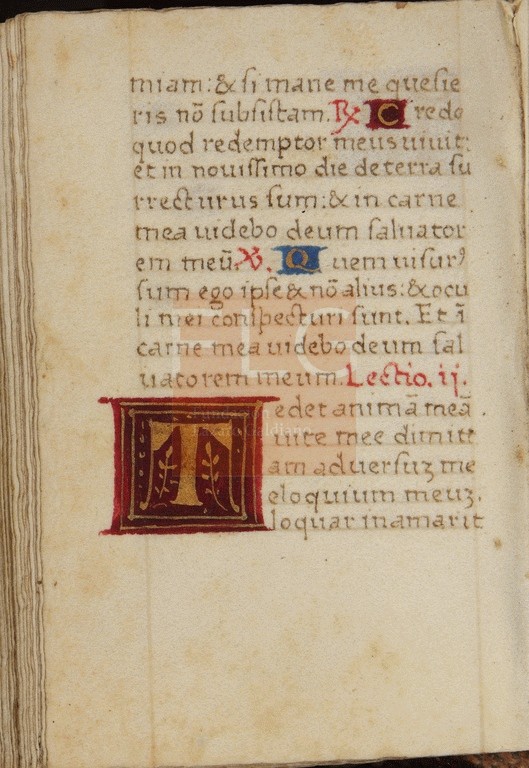 miam: & si mane me quesie
ris nō subsistam. ℞ Credo
quod redemptor meus uiuit:
et in nouissimo die de terra su
rrecturus sum: & in carne
mea uidebo deum saluator
em meū. ℣. Quem uisurꝰ
sum ego ipse & nō alius: & ocu
li mei cōspecturi sunt. Et ī
carne mea uidebo deum sal
uatorem meum. Lectio. ij.
Tedet animā meā
uite mee dimitt
am aduersuꝫ me
eloquium meuꝫ.
loquar in amarit
FLG